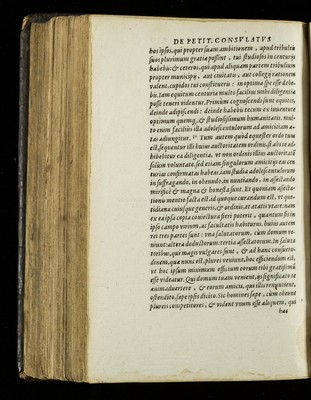 DE PETIT. CONSVLATVS
hos ipsos, qui propter suam ambitionem, apud tribuleis
suos plurimum gratia possint, tui studiosos in centurijs
habebis: & ceteros, qui apud aliquam partem tribulium
propter municipij, aut vicinitatis, aut collegij rationem
valent, cupidos tui constitueris: in optima spe esse debe-
bis. Iam equitum centuriæ multo facilius mihi diligentia
posse teneri videntur. Primùm cognoscendi sunt equites,
deinde adipiscendi: deinde habebis tecum ex iuuentute
optimum quemq. & studiosissimum humanitatis. mul-
to enim facilius illa adolescentulorum ad amicitiam æ-
tas adiungitur. Tum autem quòd equester ordo tuus
est, sequentur illi huius auctoritatem ordinis, si abs te ad-
hibebitur ea diligentia, vt non ordinis illius auctoritate
solùm voluntate, sed etiam singulorum amicitijs eas cen
turias confirmatas habeas. iam studia adolescentulorum
in suffragando, in obeundo, in nuntiando, in assectando
mirificè & magna & honesta sunt. Et quoniam assecta-
tionis mentio facta est: id quoque curandum est, vt quo-
tidiana cuiusque generis, & ordinis, et ætatis vtare: nam
ex ea ipsa copia coniectura fieri poterit, quantum sis in
ipso campo virium, ac facultatis habiturus. huius autem
rei tres partes sunt: vna salutatorum, cùm domum ve-
niunt: altera deductorum: tertia assectatorum. In saluta
toribus, qui magis vulgares sunt, & ad hanc consuetu-
dinem, quæ nunc est, plures veniunt, hoc efficiendum est,
vt hoc ipsum minimum officium eorum tibi gratissimū
esse videatur. Qui domum tuam venient, ijs significato te
animaduertere, & eorum amicis, qui illis renuntient,
ostendito, sæpe ipsis dicito. Sic homines sæpe, cùm obeunt
plureis competitores, & vident vnum esse aliquem, qui
hæc